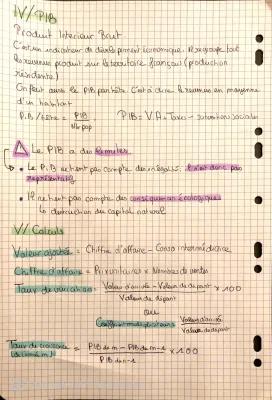 IV/ PIB
Produit Interieur Brut
C'est un indicateur de développement économique. Il regroupe tout
les revenus produit sur le territoire français (production
résidente)
On peut aussi le PIB par tête. C'est à dire le revenus en moyenne
d'un habitant
PIB/tête = PIB / Nbr pop PIB = VA + Taxes - subventions
Le PIB a des limites
• Le PIB ne tient pas compte des inégalités. Il n'est donc pas
représentatif
• Il ne tient pas compte des conséquences écologiques
la destruction du capital naturel
V/ Calculs
Valeur ajoutée = Chiffre d'affaire - Conso intermédiaire
Chiffre d'affaire = Prix unitaires × Nombres de ventes
Taux de variation : Valeur d'arrivée - Valeur de départ / Valeur de départ × 100
ou
Coefficient multiplicateur Valeur d'arrivée / Valeur de départ
Taux de croissance = PIB de n - PIB de n-1 / PIB de n-1 × 100